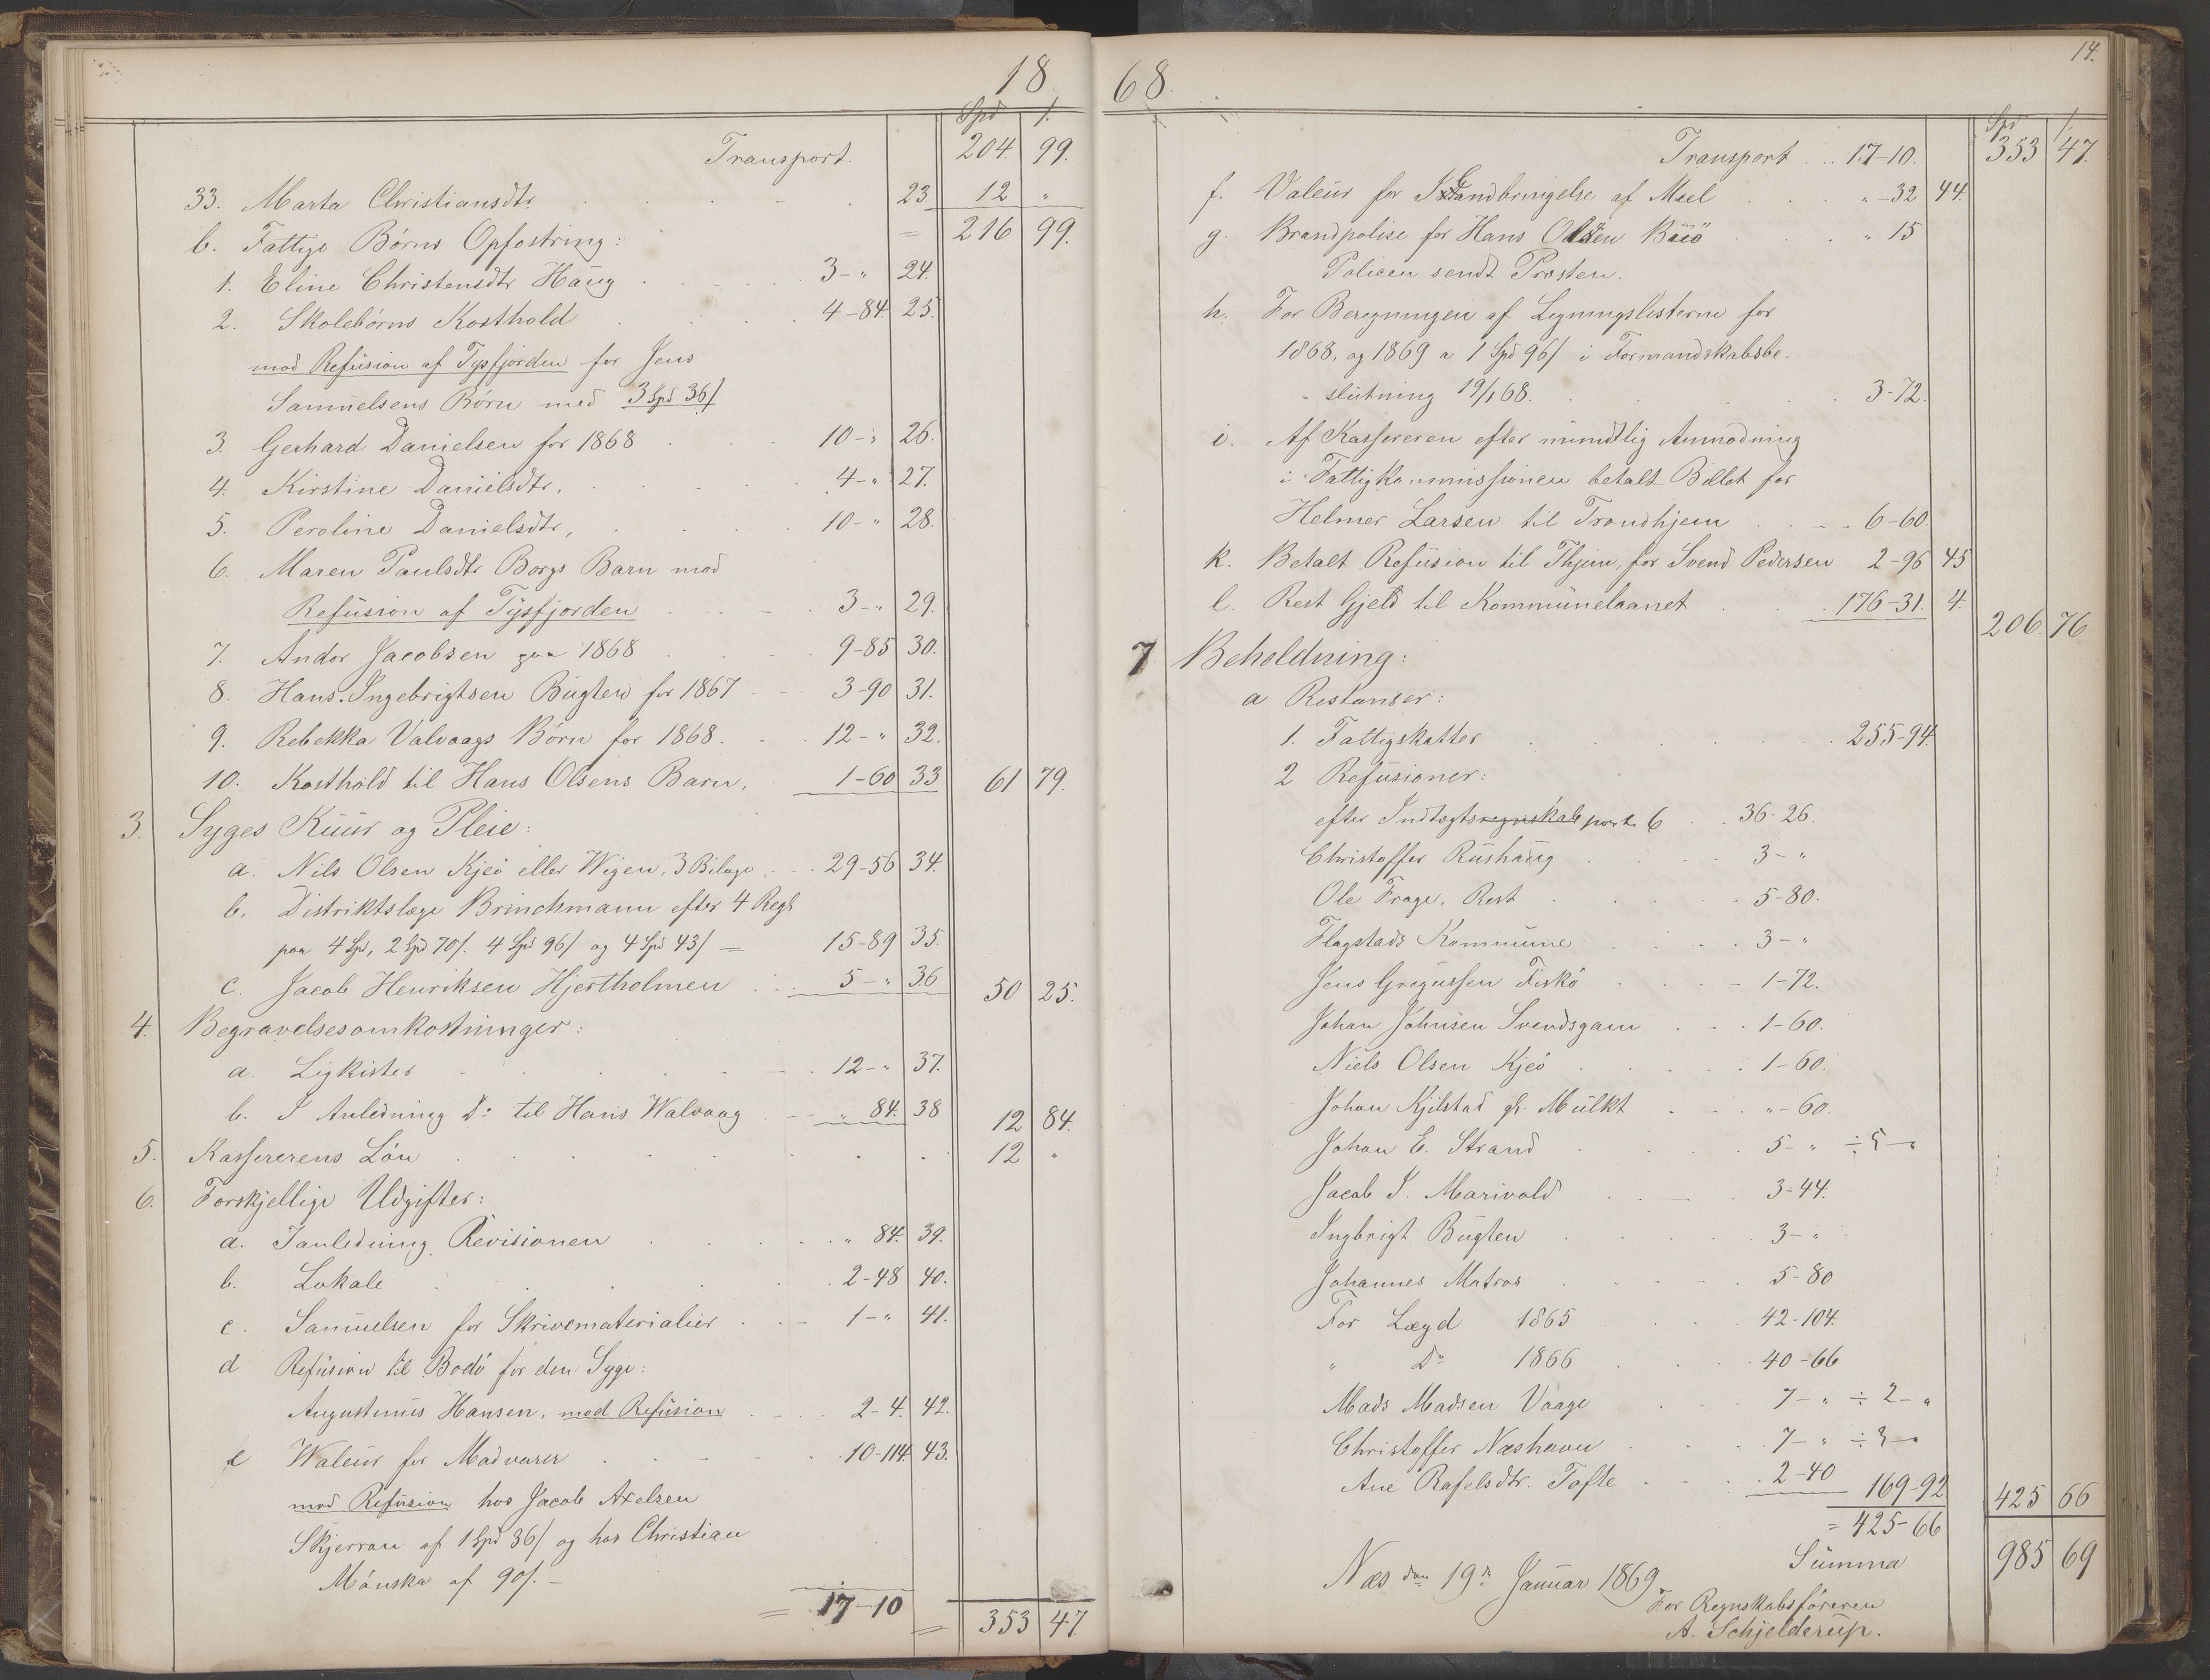 18
Spd ſ.
Transport. 204. 99.
33. Marta Christiansdtr. 23. 12 "
b. Fattige Børns Opfostring: = 216 99.
1. Eline Christensdtr Haug 3-" 24.
2. Skolebørns Kosthold 4-84. 25.
mod Refusion af Tysfjorden for Jens
Samuelsens Børn med 3 Spd 36ſ
3. Gerhard Danielsen for 1868 10-" 26.
4. Kirstine Danielsdtr. 4-" 27.
5. Peroline Danielsdtr, 10-" 28.
6. Maren Paulsdtr Borgs Barn mod
Refusion af Tysfjorden 3-" 29.
7. Andor Jacobsen paa 1868 9-85 30.
8. Hans Ingebrigtsen Bugten for 1867 3-90 31.
9. Rebekka Valvaags Børn for 1868. 12-" 32.
10. Kosthold til Hans Olsens Barn, 1-60 33 61 79.
3. Syges Kuur og Pleie:
a. Nils Olsen Kjeö eller Wigen, 3 Bilage 29-56 34.
b. Distriktslæge Brinchmann efter 4 Regr
paa 4 Spd, 2 Spd 70ſ. 4 Spd 96ſ og 4 Spd 43ſ = 15-89 35.
c. Jacob Henriksen Hjertholmen 5-" 36 50 25.
4. Begravelsesomkostninger:
a. Ligkister 12-" 37.
b. I Anledning Do til Hans Walvaag " 84. 38 12 84.
5. Kassererens Lön 12 "
6. Forskjellige Udgifter:
a. I anledning Revisionen " 84. 39.
b. Lokale 2-48 40.
c. Samuelsen for Skrivematerialier 1-" 41.
d Refusion til Bodö for den Syge:
Augustinus Hansen, mod Refusion 2-4. 42.
e Waleur for Madvarer 10-114. 43.
mod Refusion hos Jacob Axelsen
Skjerran af 1 Spd 36ſ og hos Christian
Mönska af 90ſ. -
= 17-10 = 353 47
68.
14.
Spd ſ.
Transport 17-10. 353 47.
f. Valeur for Istandbringelse af Meel "-32 44.
g. Brandpolise for Hans Olsen Baiö " 15
Policen sendt Præsten.
h. For Beregningen af Ligningslisterne for
1868, og 1869 a 1 Spd 96ſ i Formandskabsbe-
slutning 19/1 68. 3-72.
i. Af Kassereren efter mundtlig Anmodning
i Fattigkommissionen betalt Billet for
Helmer Larsen til Trondhjem 6-60.
k. Betalt Refusion til Thjem, for Svend Pedersen 2-96 45
l. Rest Gjeld til Kommunelaanet 176-31. 4. 206 76
7 Beholdning:
a Restanser:
1. Fattigskatter 255-94.
2 Refusioner:
efter Indtægtsregnskab post. 6 36-26.
Christoffer Rushaug 3-"
Ole Frage, Rest 5-80.
Flagstads Kommune 3-"
Jens Gregussen Fiskö 1-72.
Johan Johnsen Svendsgam 1-60.
Niels Olsen Kjeö 1-60.
Johan Kjilstad gl. Mulkt "-60.
Johan E. Strand 5-" ÷5-"
Jacob I. Marivold 3-44.
Ingbrigt Bugten 3-"
Johannes Matros 5-80
For Lægd 1865 42-104.
" Do 1866 40-66
Mads Madsen Vaage 7-" ÷2-"
Christoffer Næshavn 7-" ÷3-"
Ane Rafelsdtr. Tofte 2-40 169-92 425 66
= 425-66
Summa 985 69
Næs den 19de Januar 1869
For Regnskabsföreren
A. Schjelderup.